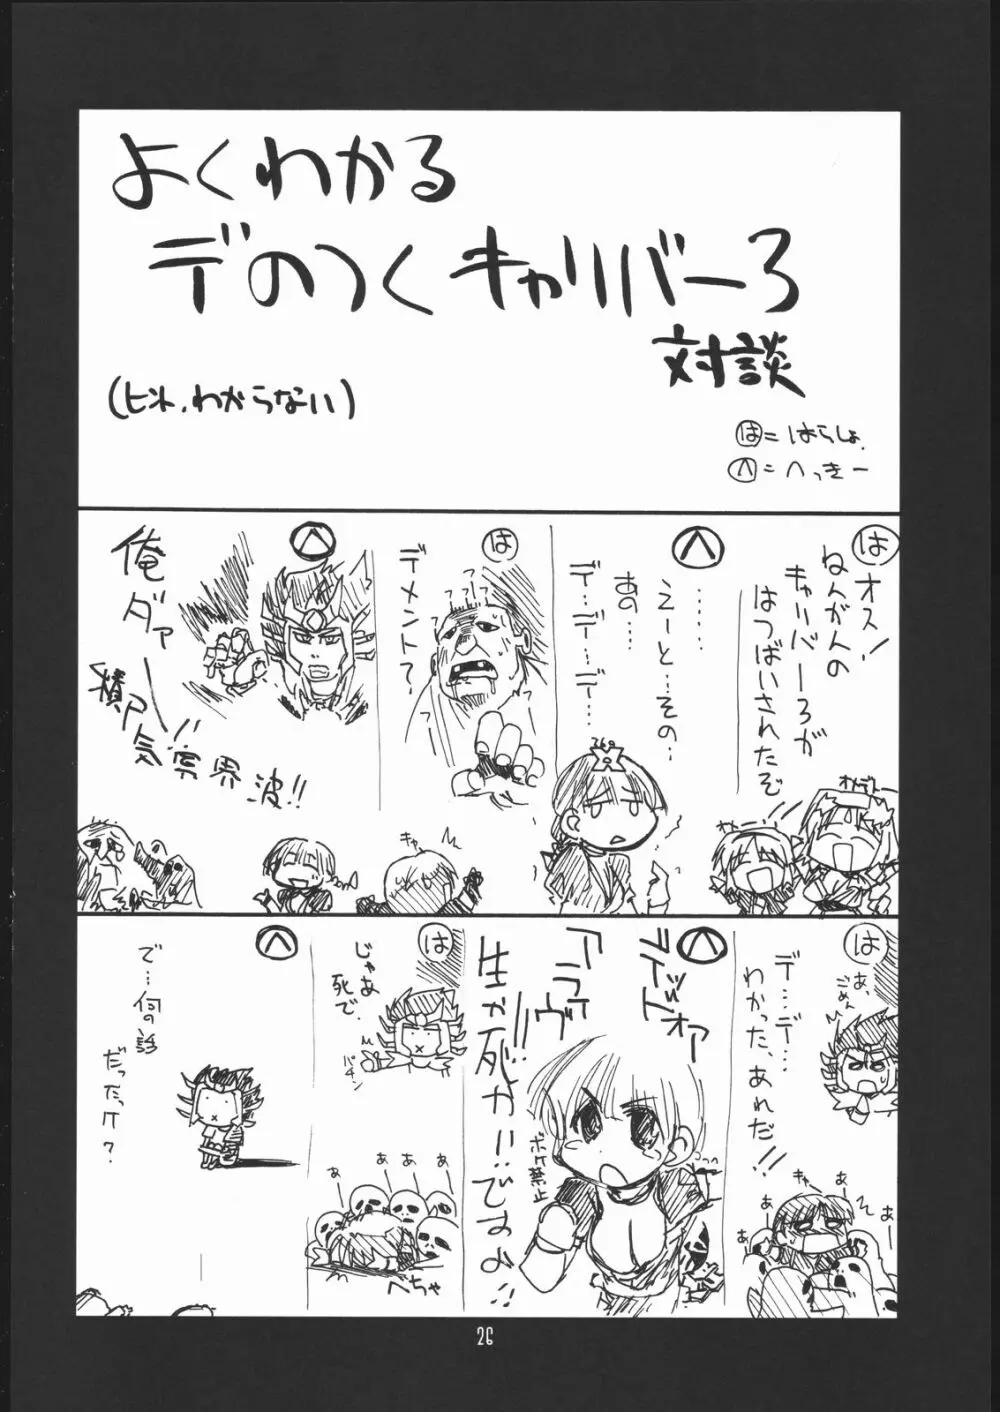 よくわかる
デのつくキャリバー3
対談
(ヒント.わからない)
は=はらしょ.
へ=へっきー
は
オス!
ねんがんの
キャリバー3が
はつばいされたぞ
オメデトー
へ
……
えーと…その…
あの…
デ…デ…デ…
は
デメント?
へ
俺ダァー!!
積尸気冥界波!!
キャ
は
あ、
ごめん
デ…デ…
わかった、あれだ!!
キャー
あ
あ
あ
あ
へ
ライドォア
アライヴ
生か死か!!…ですよ!!
ボケ禁止
は
じゃあ
死で.
パチン
あ
あ
あ
あ
べちゃ
へ
で…何の話
だったっけ?
26